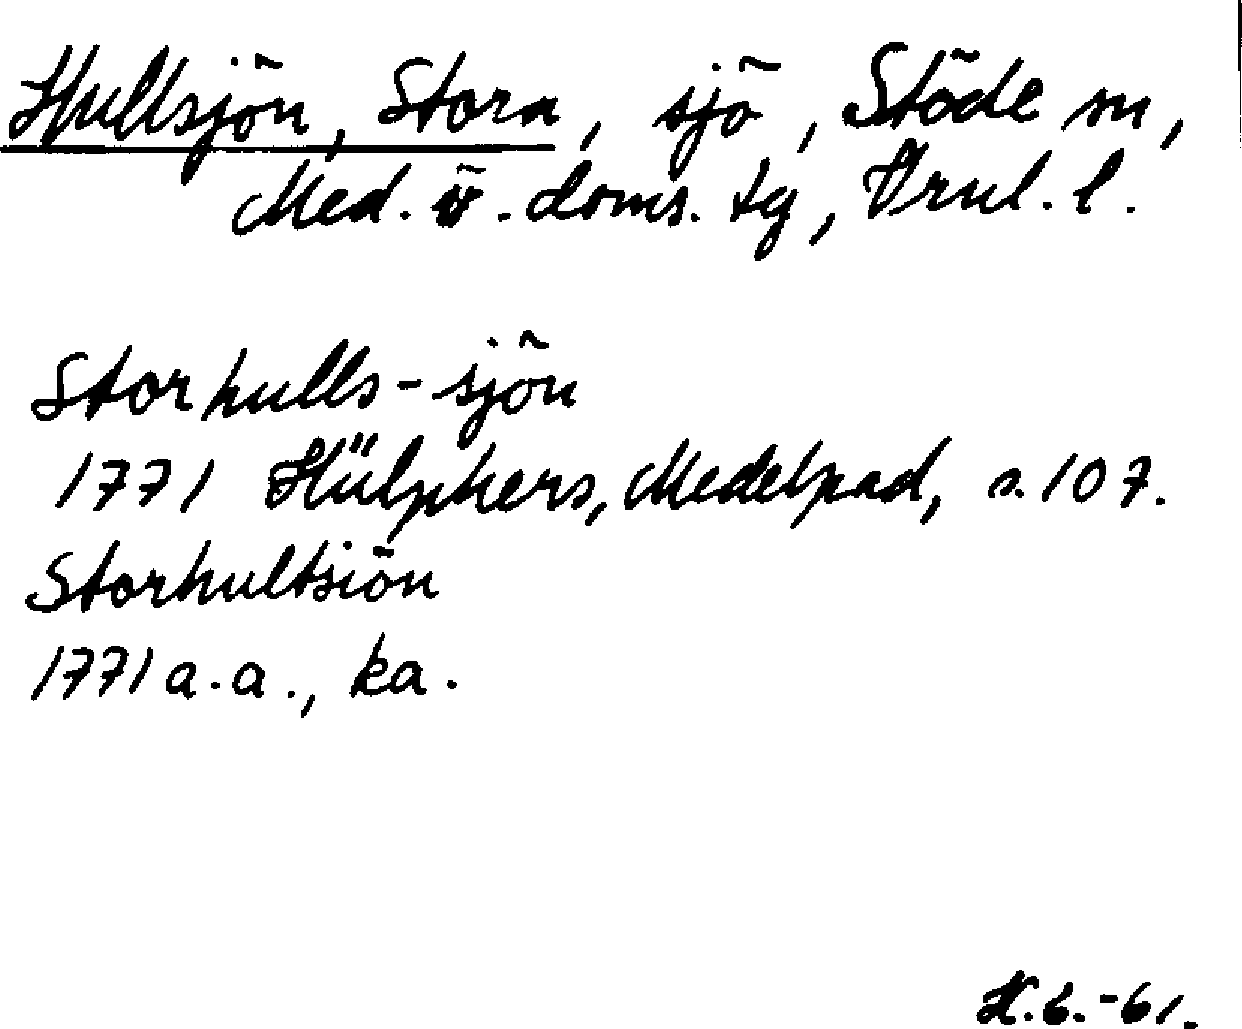 Hullsjön, Stora, sjö, Stöde sn,
Med. v. doms. tg, Vnl. l.
Storhulls-sjön
1771 Hülphers, Medelpad, s. 107.
Storhultsiön
1771 a.a., ka.
-61.